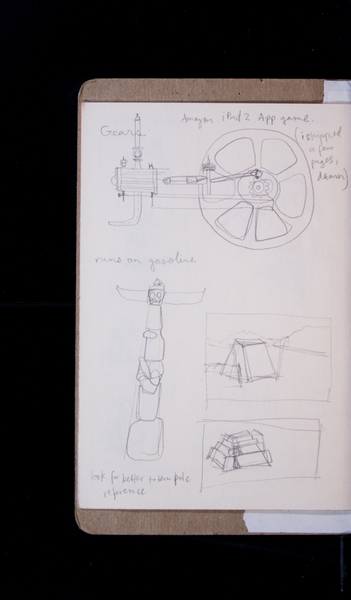 Amazon iPad 2 App game.
Gears
(i skipped
a few
pages,
damn)
runs on gasoline
look for better totem pole
reference